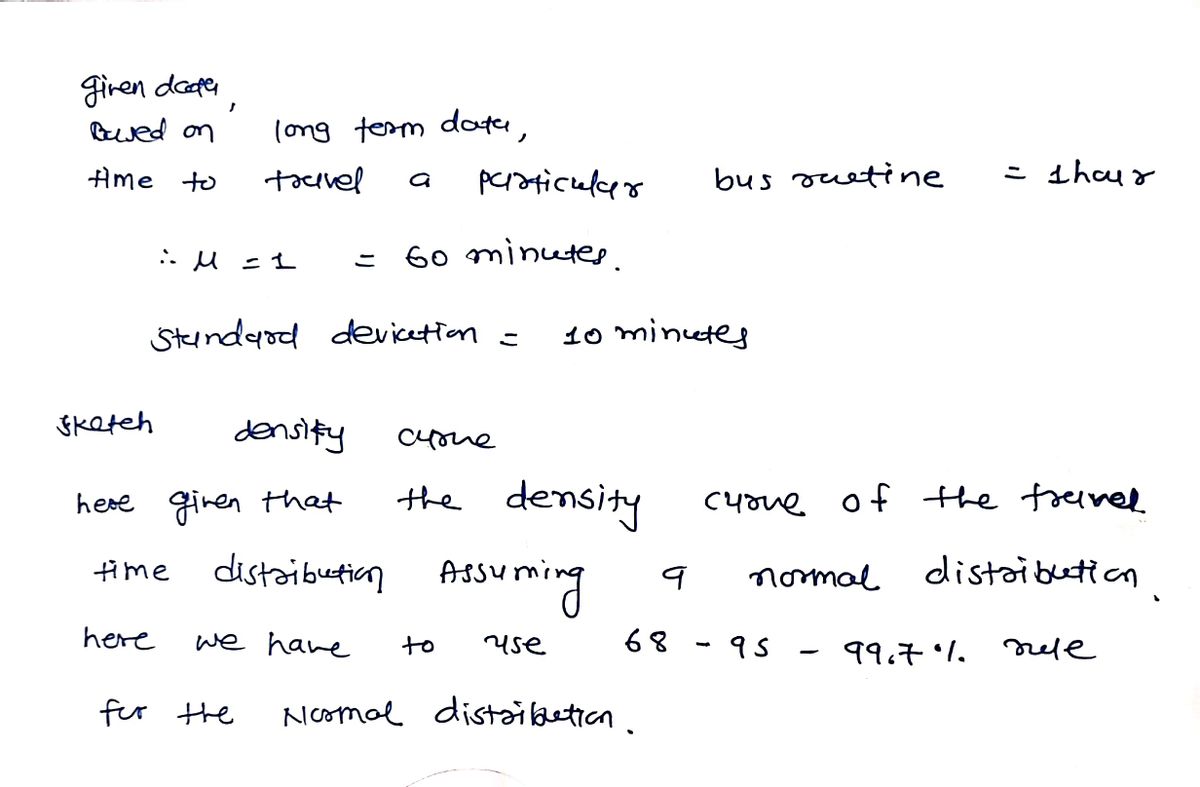 given data,
Based on long term data,
time to travel a particular bus routine = 1 hour
∴ μ = 1 = 60 minutes.
Standard deviation = 10 minutes
sketch density curve
here given that the density curve of the travel
time distribution Assuming a normal distribution.
here we have to use 68 - 95 - 99.7 % rule
for the Normal distribution.